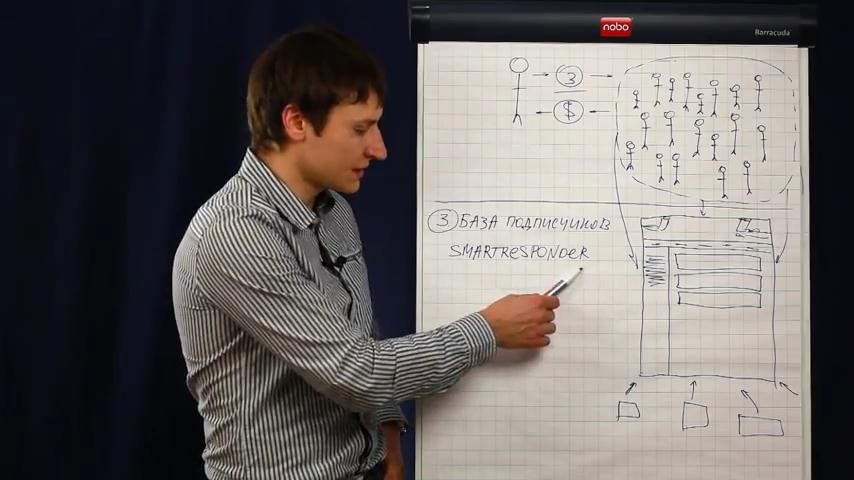 nobo
Barracuda
3
$
3 БАЗА ПОДПИСЧИКОВ
SMARTRESPONDER